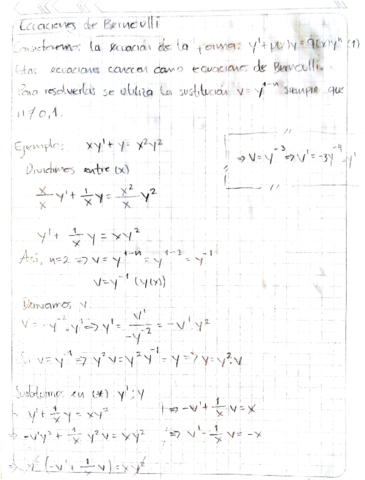 Ecuaciones de Bernoulli
Consideremos la ecuación de la forma: y' + p(x)y = q(x)yⁿ (1)
Estas ecuaciones conocen como ecuaciones de Bernoulli.
Para resolverlas se utiliza la sustitución v = y^{1-n} siempre que
n ≠ 0,1.
Ejemplo: xy' + y = x²y²
⇒ v = y^{-3} ⇒ v' = -3y^{-4} · y'
Dividimos entre (x)
x/x y' + 1/x y = x²/x y²
y' + 1/x y = xy²
Así, n=2 ⇒ v = y^{1-n} = y^{1-2} = y^{-1}
v = y^{-1} (y(x))
Derivamos v.
v = -y^{-2} · y' ⇒ y' = v'/-y^{-2} = -v' y²
Si v = y^{-1} ⇒ y²v = y² y^{-1} = y ⇒ y = y²·v
Sustituimos en (*) y' : y
y' + 1/x y = xy²
⇒ -v' + 1/x v = x
-v'y² + 1/x y²v = xy²
⇒ v' - 1/x v = -x
⇒ y² (-v' + 1/x v) = xy²